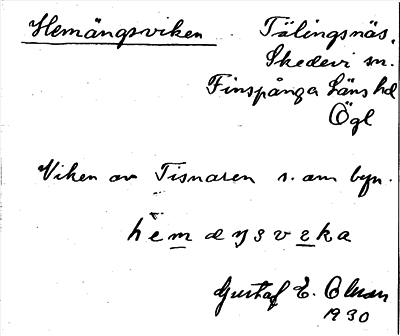 Hemängsviken
Tälingsnäs,
Skedevi sn.
Finspånga Läns hd
Ögl
Viken av Tisnaren s. om byn.
Gustaf E.
1930